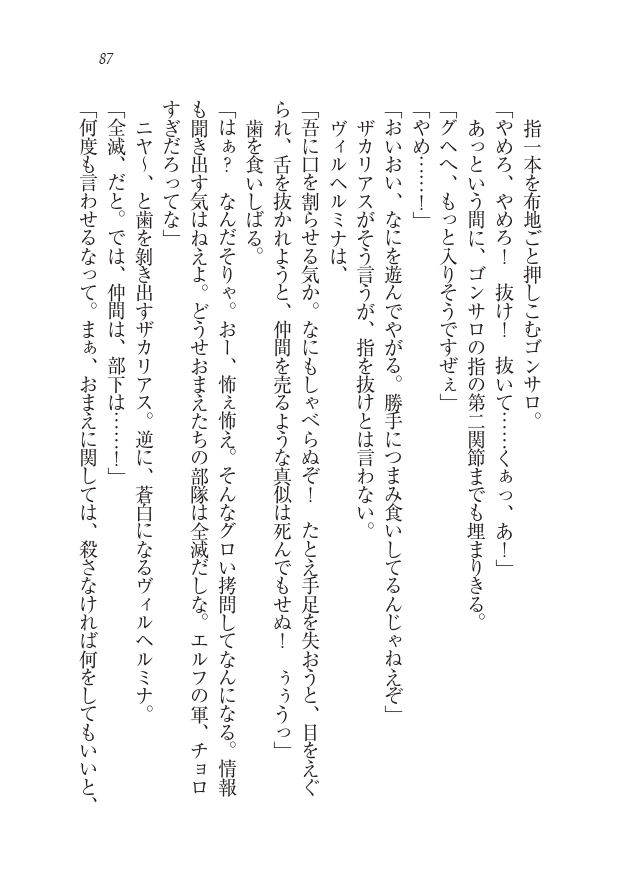 87
指一本を布地ごと押しこむゴンサロ。
「やめろ、やめろ！　抜け！　抜いて……くぁっ、あ！」
あっという間に、ゴンサロの指の第二関節までも埋まりきる。
「グヘへ、もっと入りそうですぜぇ」
「やめ……！」
「おいおい、なにを遊んでやがる。勝手につまみ食いしてるんじゃねえぞ」
ザカリアスがそう言うが、指を抜けとは言わない。
ヴィルヘルミナは、
「吾に口を割らせる気か。なにもしゃべらぬぞ！　たとえ手足を失おうと、目をえぐ
られ、舌を抜かれようと、仲間を売るような真似は死んでもせぬ！　ぅぅうっ」
歯を食いしばる。
「はぁ？　なんだそりゃ。おー、怖ぇ怖え。そんなグロい拷問してなんになる。情報
も聞き出す気はねえよ。どうせおまえたちの部隊は全滅だしな。エルフの軍、チョロ
すぎだろってな」
ニヤ〜、と歯を剝き出すザカリアス。逆に、蒼白になるヴィルヘルミナ。
「全滅、だと。では、仲間は、部下は……！」
「何度も言わせるなって。まぁ、おまえに関しては、殺さなければ何をしてもいいと、